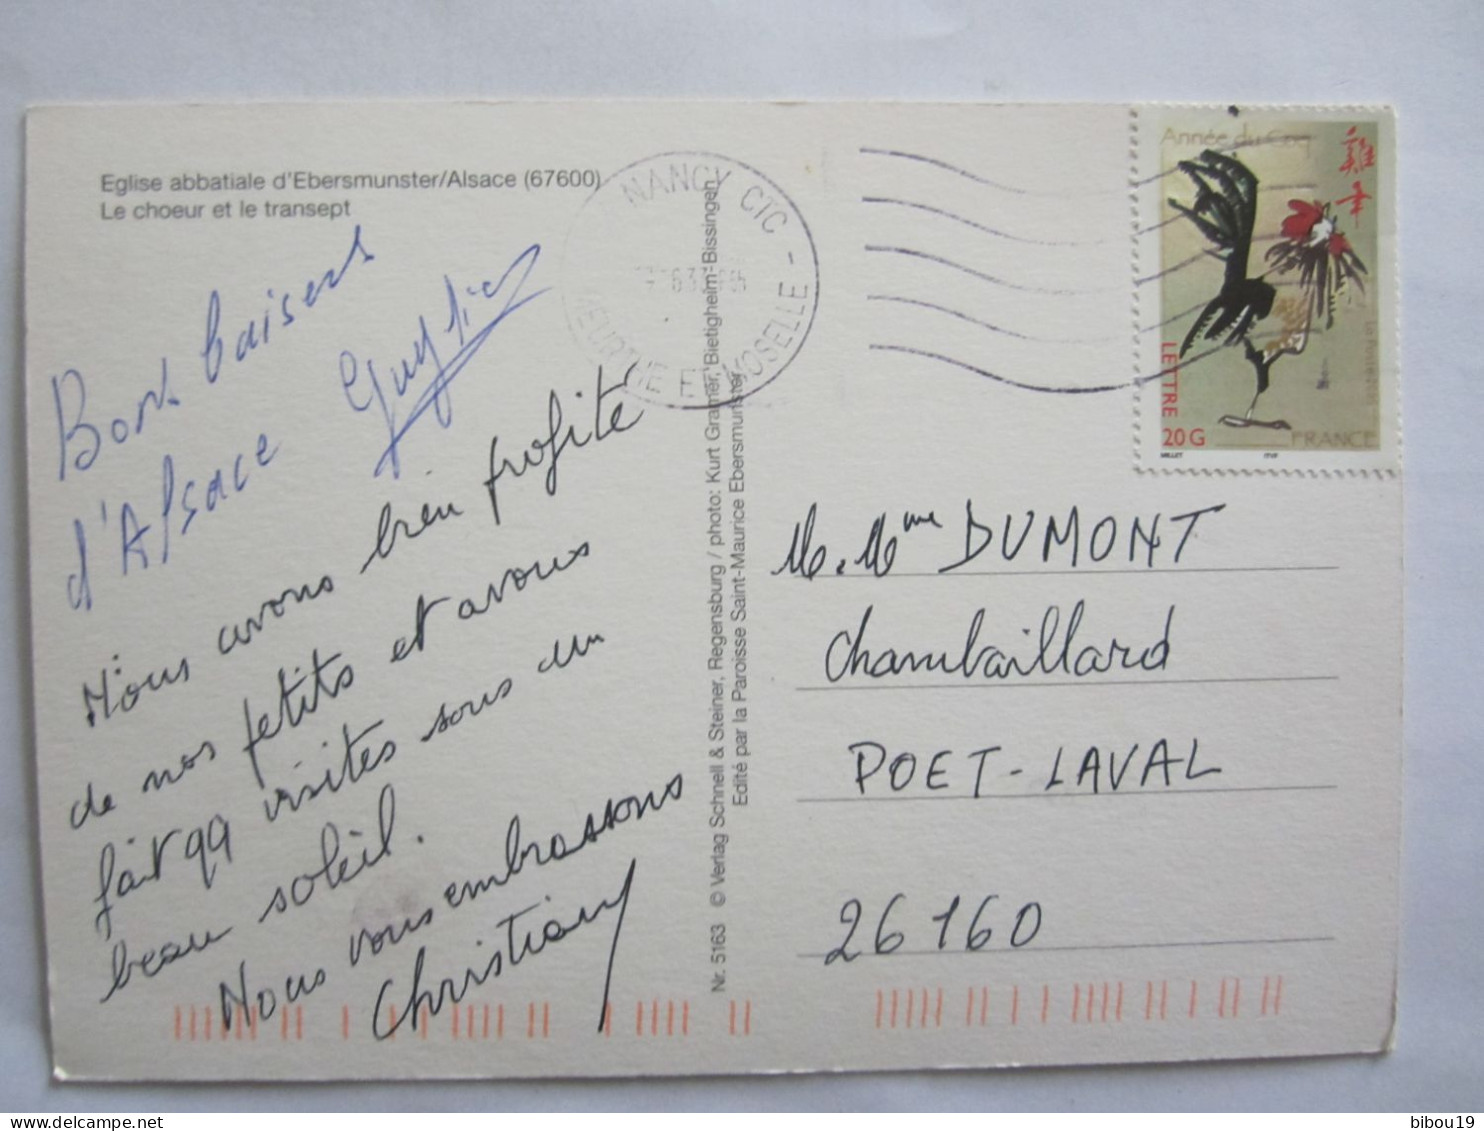 Eglise abbatiale d'Ebersmunster/Alsace (67600)
Le choeur et le transept
Bons baisers
d'Alsace
Nous avons bien profité
de nos petits et avons
fait qq visites sous un
beau soleil.
Nous vous embrassons
Christian
Nr. 5163 © Verlag Schnell & Steiner, Regensburg / photo: Kurt Gramer, Bietigheim-Bissingen
Edité par la Paroisse Saint-Maurice Ebersmunster
NANCY CTC -
MEURTHE ET MOSELLE -
Année du Coq
雞年
LETTRE
20G
La Poste
FRANCE
MILLET
ITVF
M. Mme DUMONT
Chambaillard
POET-LAVAL
26160
bibou19